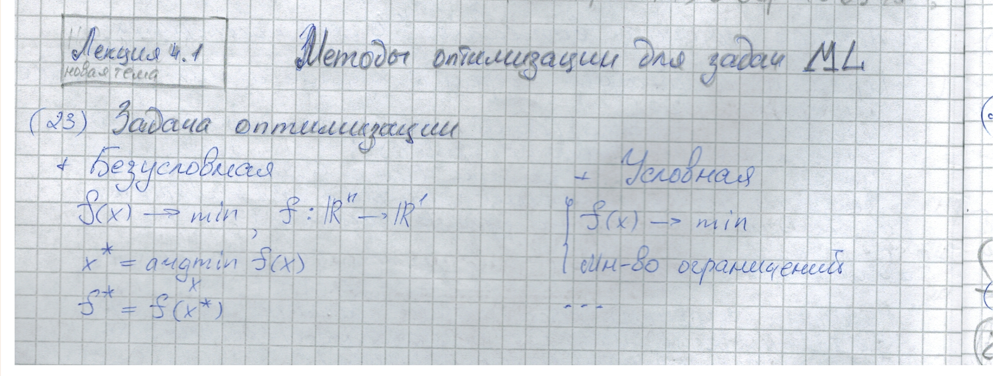 Лекция 4.1
новая тема
Методы оптимизации для задач ML
(23) Задача оптимизации
+ Безусловная
f(x) → min , f : ℝⁿ → ℝ¹
x* = argmin f(x)
x
f* = f(x*)
+ Условная
{ f(x) → min
мн-во ограничений
---